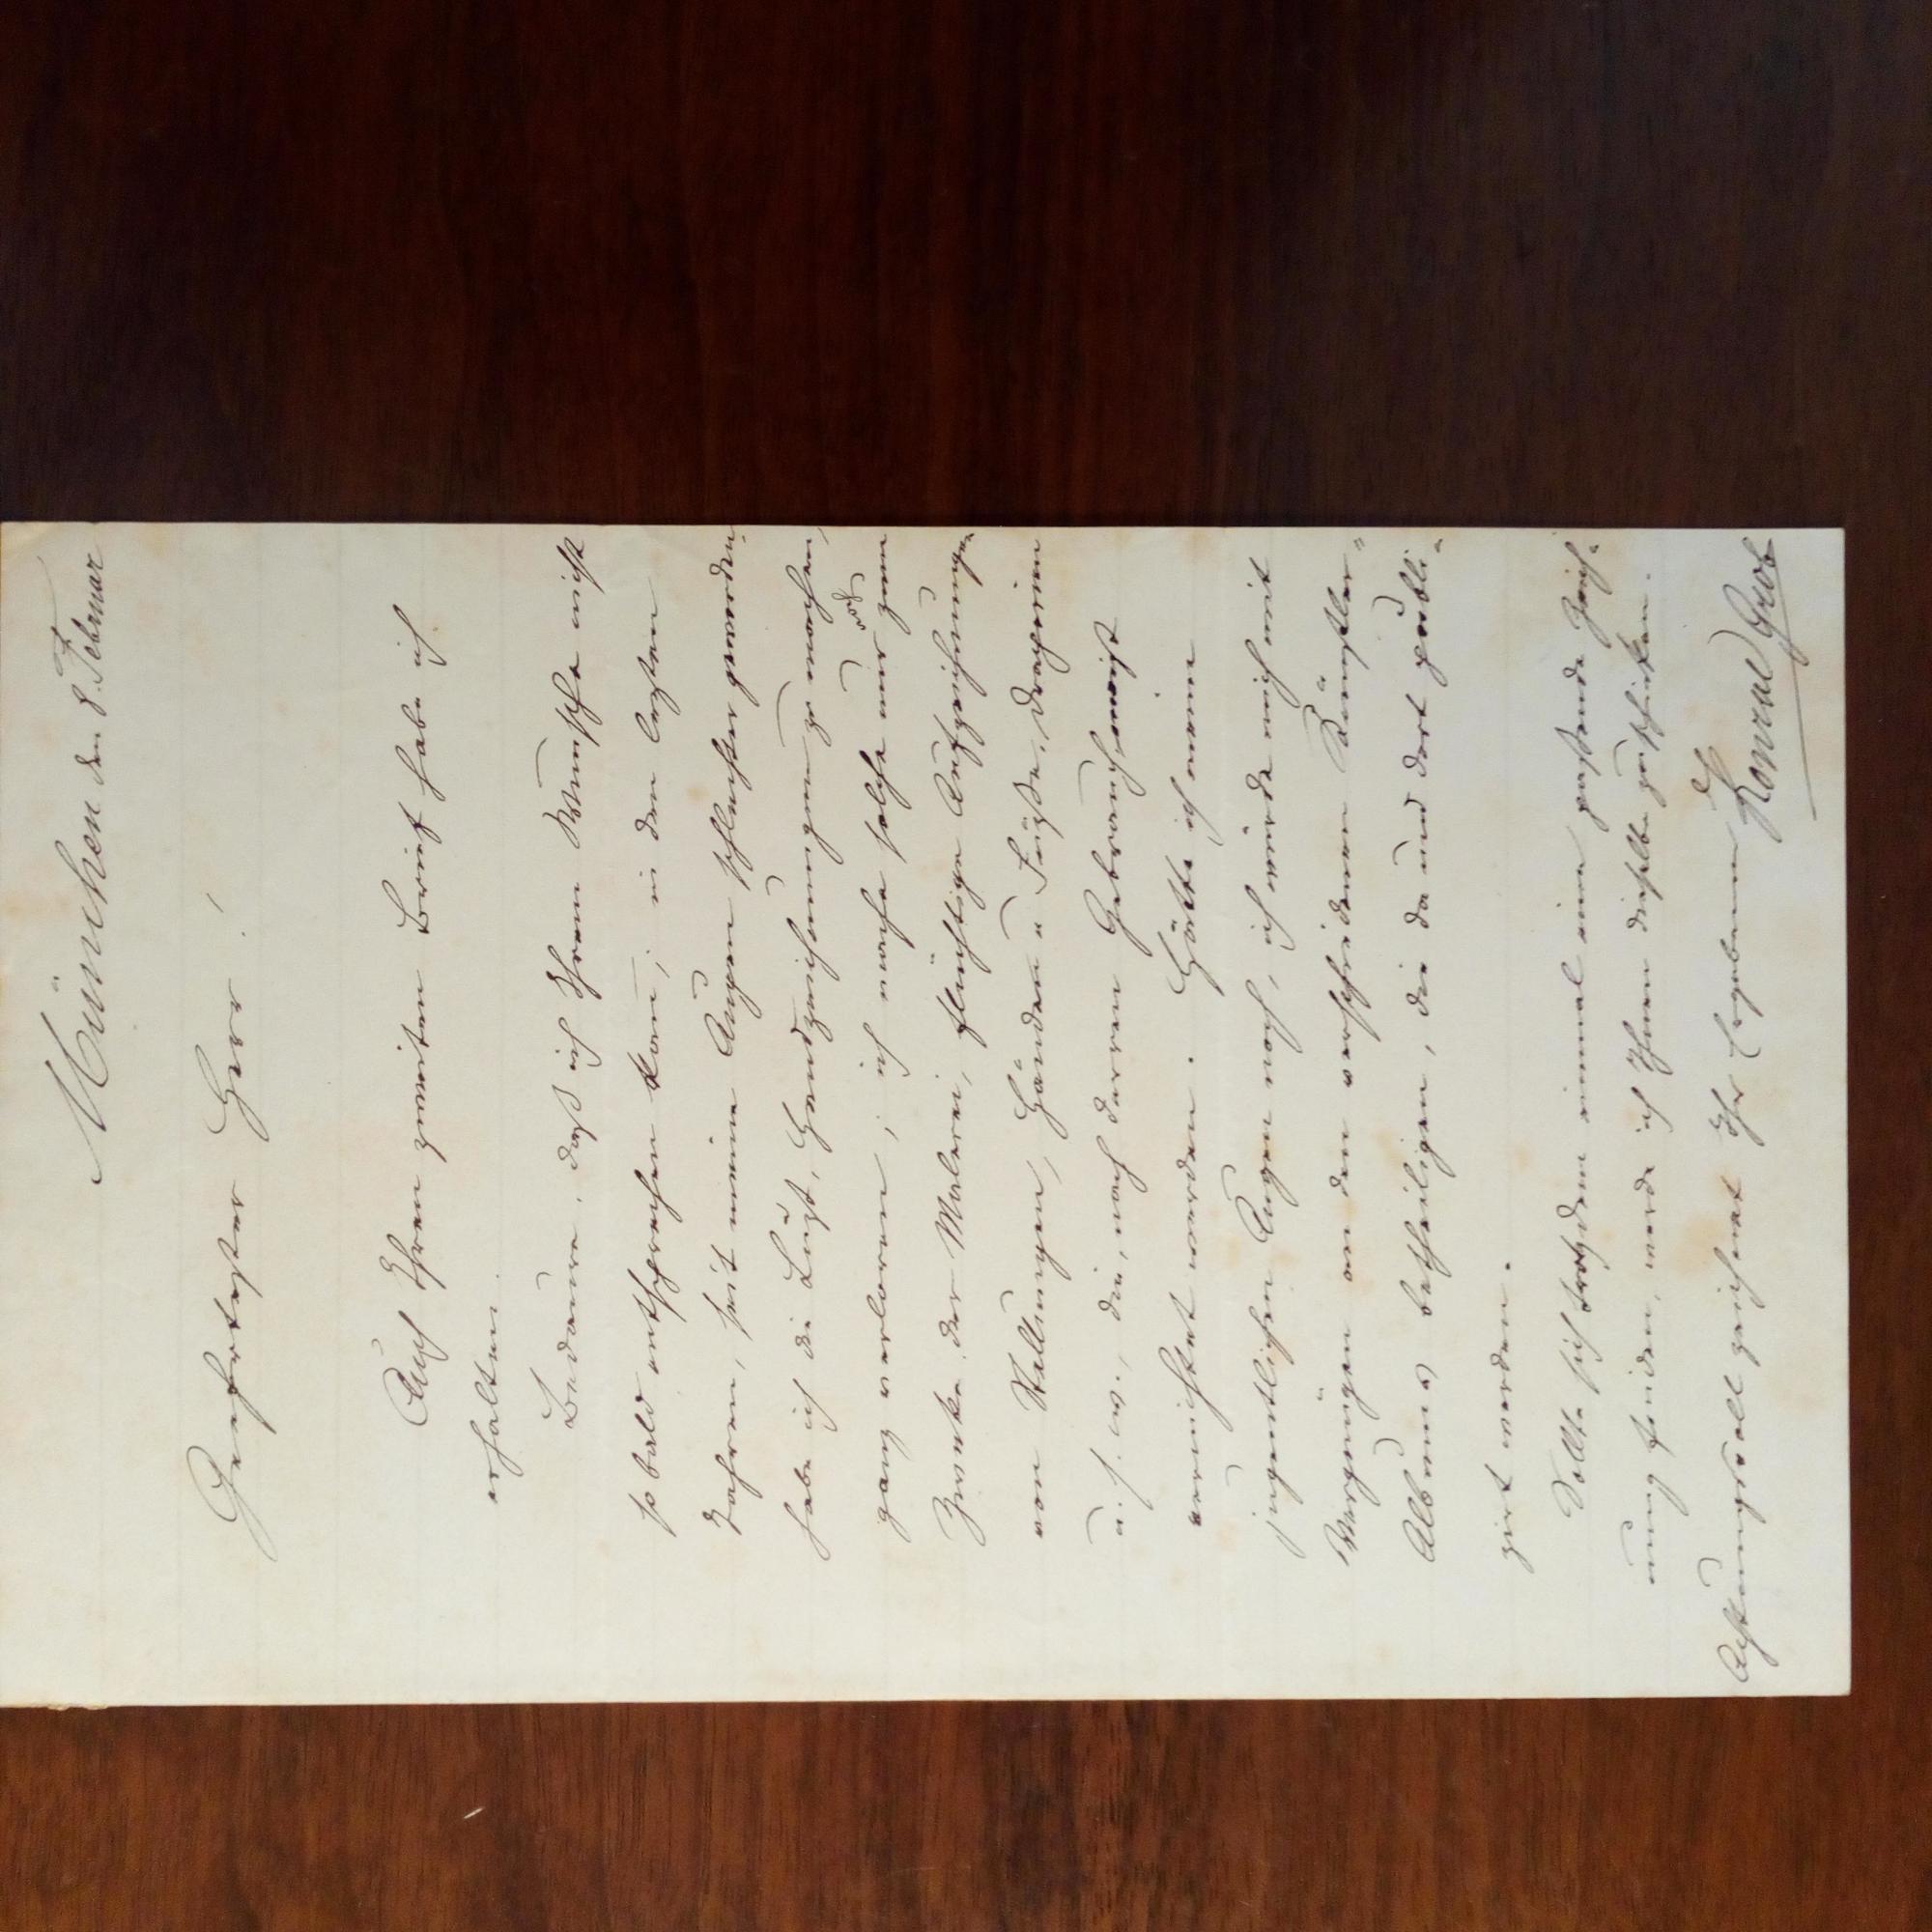 München den 8. Februar
Geehrtester Herr!
Auch Ihren zweiten Brief habe ich
erhalten.
Bedaure, daß ich Ihrem Wunsche nicht
so bald entsprechen kann; in den lezten
Jahren, seit meine Augen schlechter geworden,
habe ich die Lust, Handzeichnungen zu machen,
ganz verloren; ich mache solche nur noch zum
Zwecke der Malerei, flüchtige Aufzeichnungen
von Stellungen, Händen u Füße, Draperien
u.s.w., die, nach deren Gebrauch meist
vernichtet werden. Hätte ich meine
jugentlichen Augen noch, ich würde mich mit
Vergnügen an den verschiedenen Künstler=
Albums betheiligen, die da und dort publi=
zirt werden.
Sollte sich trotzdem einmal eine passende Zeich=
nung finden, werde ich Ihnen dieselbe zuschicken.
Achtungsvoll zeichnet Ihr Ergebener
Konrad Grob